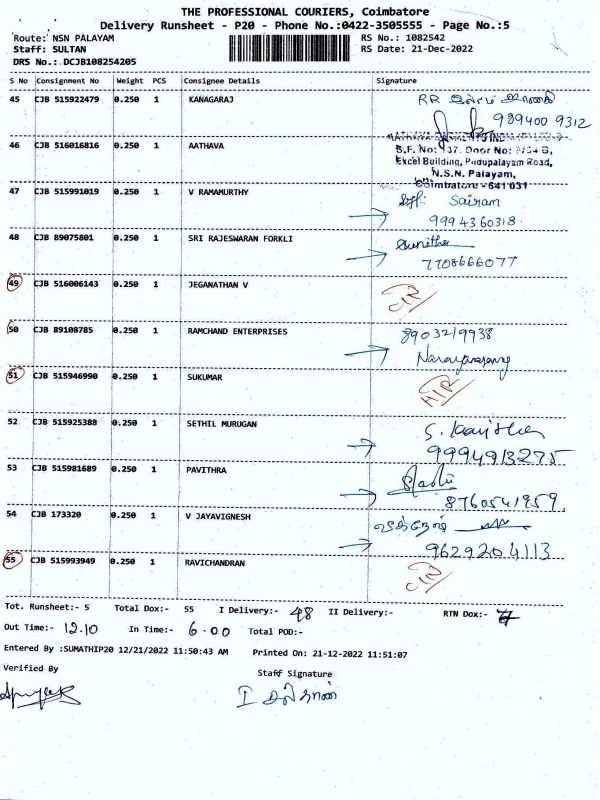 THE PROFESSIONAL COURIERS, Coimbatore
Delivery Runsheet - P20 - Phone No.:0422-3505555 - Page No.:5
Route: NSN PALAYAM RS No.: 1082542
Staff: SULTAN RS Date: 21-Dec-2022
DRS No.:DCJB108254205
S No Consignment No Weight PCS Consignee Details Signature
45 CJB 515922479 0.250 1 KANAGARAJ
989400 9312
46 CJB 516016816 0.250 1 AATHAVA
S.F. No: 137. Door No:
Excel Building, Pudupalayam Road,
N.S.N. Palayam,
Coimbatore - 641 031
47 CJB 515991019 0.250 1 V RAMAMURTHY Sairam
9994360318
48 CJB 89075801 0.250 1 SRI RAJESWARAN FORKLI Sunitha
7708666077
49 CJB 516006143 0.250 1 JEGANATHAN V
50 CJB 89108785 0.250 1 RAMCHAND ENTERPRISES 8903219938
51 CJB 515946990 0.250 1 SUKUMAR
52 CJB 515925388 0.250 1 SETHIL MURUGAN
9994913275
53 CJB 515981689 0.250 1 PAVITHRA
8760541959
54 CJB 173320 0.250 1 V JAYAVIGNESH
9629204113
55 CJB 515993949 0.250 1 RAVICHANDRAN
Tot. Runsheet:- 5 Total Dox:- 55 I Delivery:- 48 II Delivery:- RTN Dox:- 7
Out Time:- 12.10 In Time:- 6.00 Total POD:-
Entered By :SUMATHIP20 12/21/2022 11:50:43 AM Printed On: 21-12-2022 11:51:07
Verified By Staff Signature